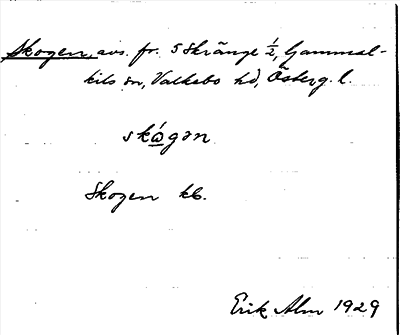 Skogen, avs. fr. 5 Skränge 1/2, Gammal-
kils sn, Valkebo hd, Österg. l.
skógən
Skogen kb.
Erik Alm 1929